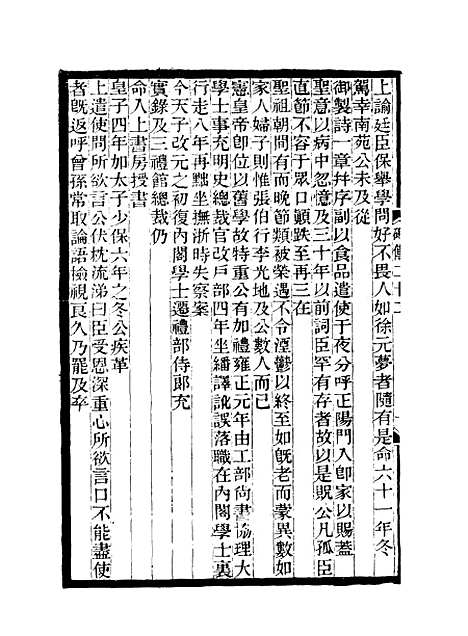 上諭廷臣保舉學問好不畏人如徐元夢者隨有是命六十一年冬
駕幸南苑公未及從
御製詩一章幷序副以食品遣使于夜分呼正陽門入卽家以賜蓋
聖意以病中忽憶及三十年以前詞臣罕有存者故以是貺公凡孤臣
直節不容于眾口顚跌至再三在
聖祖朝間有而晚節類被榮遇不令湮鬱以終至如旣老而蒙異數如
家人婦子則惟張伯行李光地及公數人而已
憲皇帝卽位以舊學故特重公有加禮雍正元年由工部尙書協理大
學士事充明史總裁官改戶部四年坐繙譯訛誤落職在內閣學士裏
行走八年再黜坐撫浙時失察案
今天子改元之初復內閣學士遷禮部侍郞充
實錄及三禮館總裁仍
命入上書房授書
皇子四年加太子少保六年之冬公疾革
上遣使問所欲言公伏枕流涕曰臣受恩深重心所欲言口不能盡使
者旣返呼曾孫常取論語檢視良久乃罷及卒